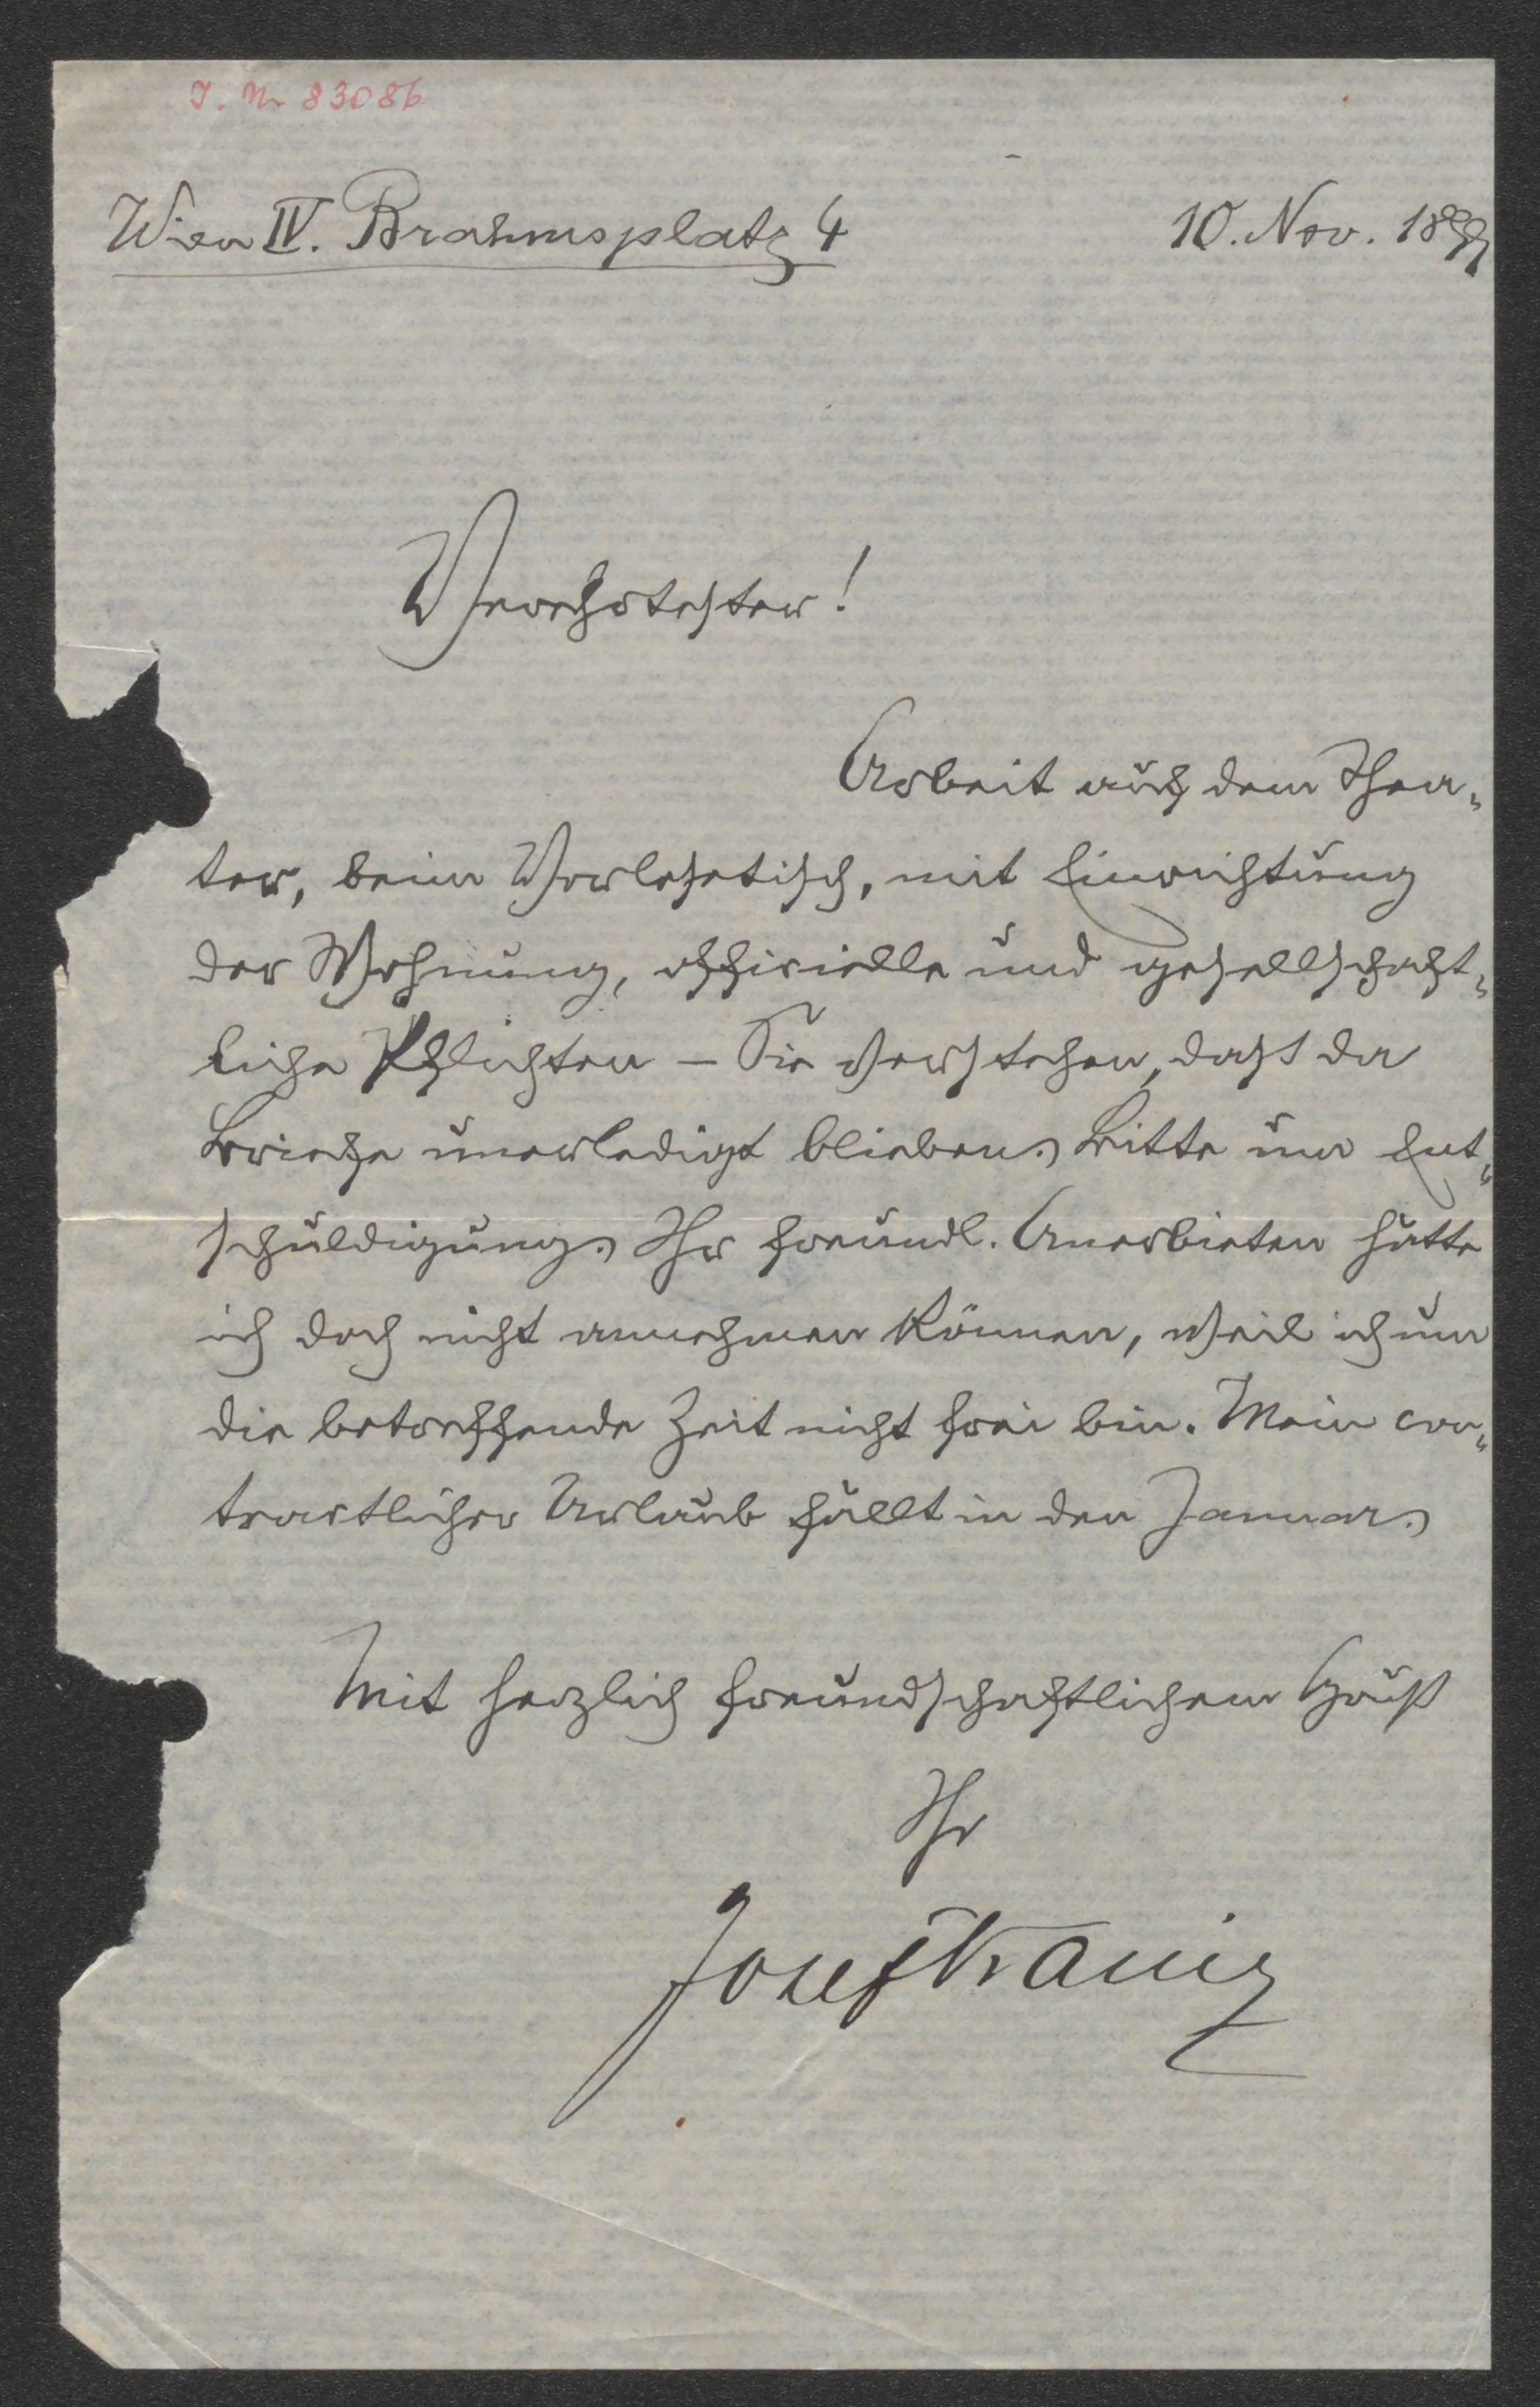 J. Nr 83086
Wien IV. Brahmsplatz 4
10. Nov. 1899
Verehrtester!
Arbeit auf dem Thea-
ter, beim Vorlesetisch, mit Einrichtung
der Wohnung, officielle und gesellschaft-
liche Pflichten – Sie verstehen, dasz da
Briefe unerledigt blieben. Bitte um Ent-
schuldigung. Ihr freundl. Anerbieten hätte
ich doch nicht annehmen können, weil ich um
die betreffende Zeit nicht frei bin. Mein con-
tractlicher Urlaub fällt in den Januar.
Mit herzlich freundschaftlichem Gruß
Ihr
Josef Kainz